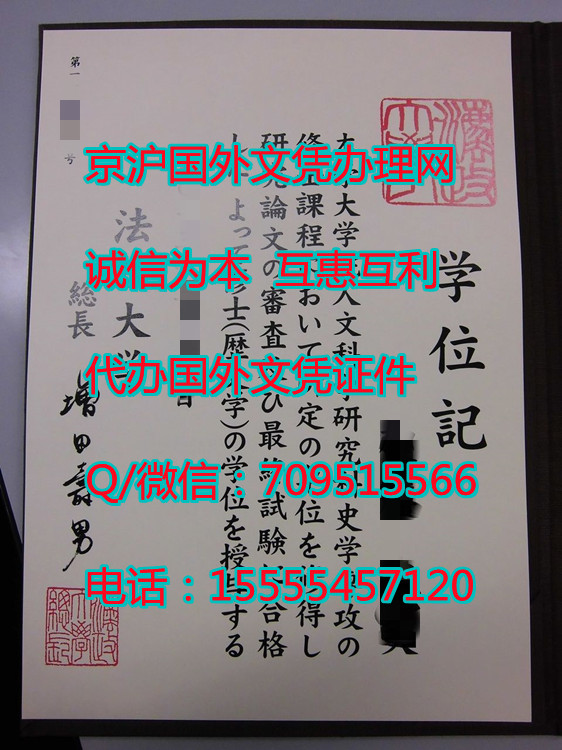 学位記
大学大学 人文科 研究 史学 攻の
課程 おいて 定の 位を 得し
研究論文の審査 び最終試験 合格
よって 士(歴 学)の学位を授与する
第一
号
法 大学
総長 増田壽男
京沪国外文凭办理网
诚信为本 互惠互利
代办国外文凭证件
Q/微信：709515566
电话：15555457120